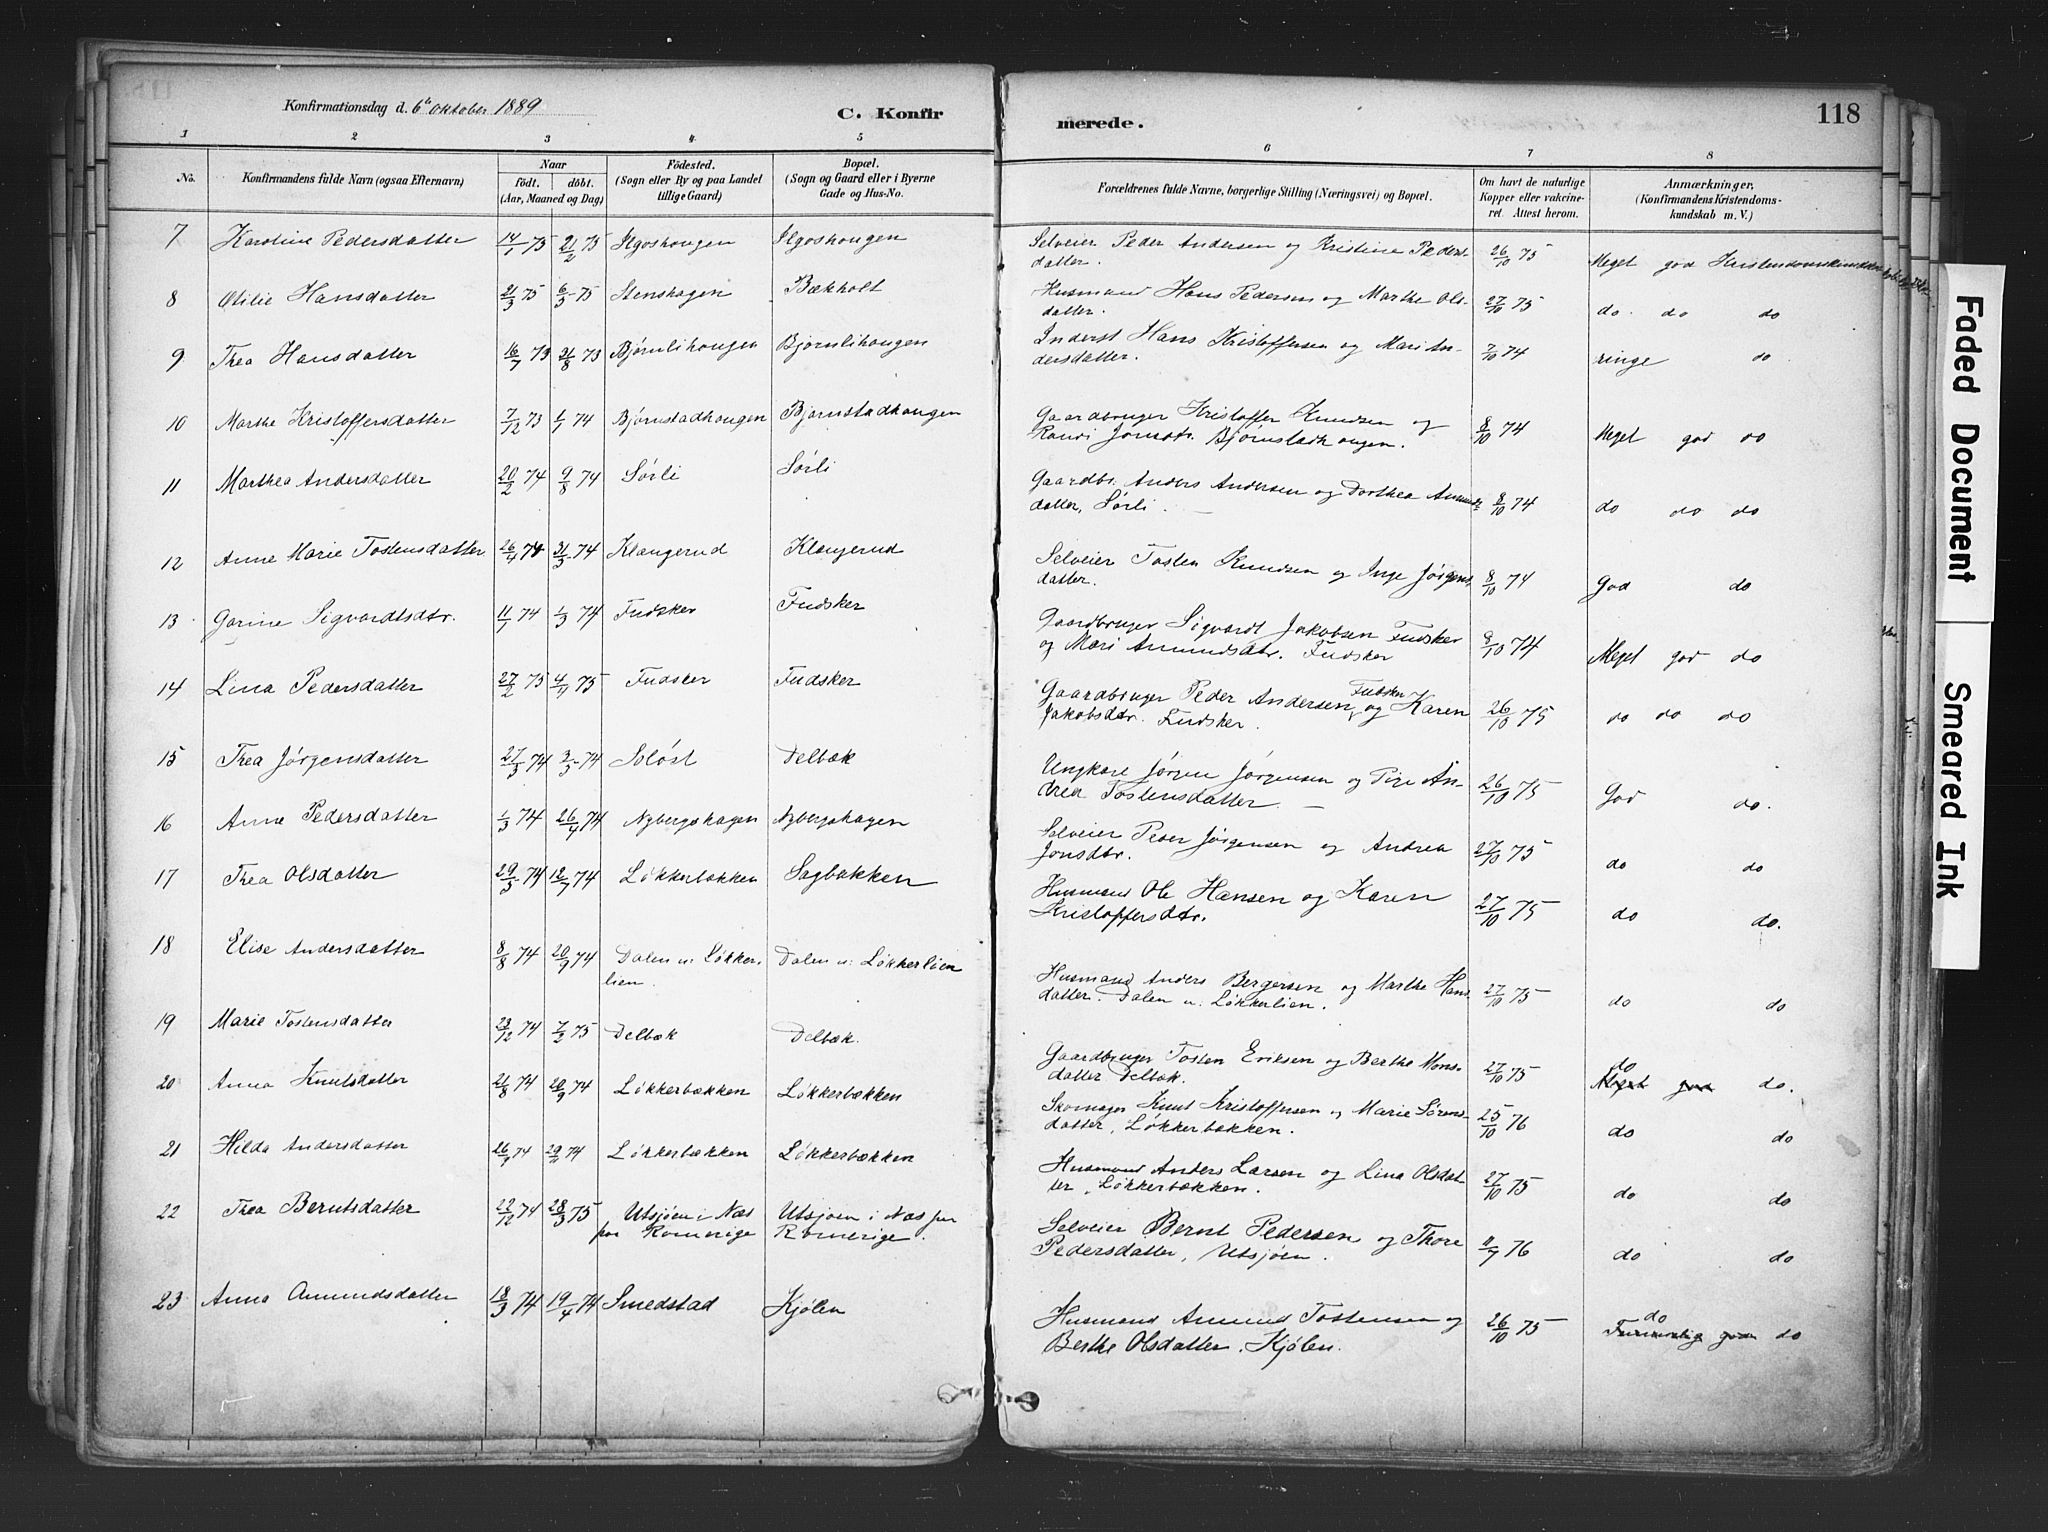 Konfirmationsdag d. 6te oktober 1889
C. Konfir
merede.
118
1 2 3 4 5 6 7 8
No.
Konfirmandens fulde Navn (ogsaa Efternavn)
Naar
født. døbt.
(Aar, Maaned og Dag)
Fødested.
(Sogn eller By og paa Landet
tillige Gaard)
Bopæl.
(Sogn og Gaard eller i Byerne
Gade og Hus-No.
Forældrenes fulde Navne, borgerlige Stilling (Næringsvei) og Bopæl.
Om havt de naturlige
Kopper eller vakcine-
ret. Attest herom.
Anmærkninger,
(Konfirmandens Kristendoms-
kundskab m. V.)
7 Karoline Pedersdatter 14/1 75 21/2 75 Ilgoshougen Ilgoshougen Selveier Peder Andersen og Kristine Peders-
datter. 26/10 75 Meget god Kristendomskundskab
8 Otilie Hansdatter 21/3 75 6/5 75 Stenshagen Bækholt Husmand Hans Pedersen og Marthe Ols-
datter. 27/10 75 do. do do
9 Thea Hansdatter 16/7 73 31/8 73 Bjørnlihougen Bjørnlihougen Inderst Hans Kristoffersen og Mari An-
dersdatter. 7/10 74 ringe do
10 Marthe Kristoffersdatter 7/12 73 1/1 74 Bjørnstadhougen Bjørnstadhougen Gaardbruger Kristoffer Knudsen og
Randi Jonsdtr. Bjørnstadhougen. 8/10 74 Meget god do
11 Marthea Andersdatter 20/2 74 9/8 74 Sørli Sørli Gaardbr. Anders Andersen og Dorthea Amunds-
datter, Sørli. 8/10 74 do do do
12 Anne Marie Tostensdatter 26/4 74 31/5 74 Klangerud Klangerud Selveier Tosten Knudsen og Inge Jørgens-
datter. 8/10 74 God do
13 Gorine Sigvardtsdtr. 11/1 74 1/3 74 Fudsker Fudsker Gaardbruger Sigvardt Jakobsen Fudsker
og Mari Amundsdtr. Fudsker 8/10 74 Meget god do
14 Lina Pedersdatter 27/2 75 4/4 75 Fudsker Fudsker Gaardbruger Peder Andersen Fudsker og Karen
Jakobsdtr. Fudsker. 26/10 75 do do do
15 Thea Jørgensdatter 27/3 74 3/5 74 Soløst Delbæk Ungkare Jørgen Jørgensen og Pige An-
drea Tostensdatter. 26/10 75 God do.
16 Anne Pedersdatter 1/3 74 26/4 74 Nybergshagen Nybergshagen Selveier Peder Jørgensen og Andrea
Jonsdtr. 27/10 75 do do
17 Thea Olsdatter 29/5 74 12/7 74 Løkkerbakken Sagbakken Husmand Ole Hansen og Karen
Kristoffersdtr. 27/10 75 do do.
18 Elise Andersdatter 8/8 74 20/9 74 Dalen u: Løkker-
lien. Dalen u: Løkkerlien Husmand Anders Bergersen og Marthe Hans-
datter. Dalen u. Løkkerlien. 27/10 75 do do
19 Marie Tostensdatter 23/12 74 7/2 75 Delbæk Delbæk. Gaardbruger Tosten Eriksen og Berthe Mons-
datter Delbæk. 27/10 75 do Meget god do.
20 Anna Knutsdatter 21/8 74 20/9 74 Løkkerbækken Løkkerbækken Skomager Knut Kristoffersen og Marie Sørens-
datter, Løkkerbækken. 25/10 76 do do
21 Hilda Andersdatter 26/9 74 29/11 74 Løkkerbækken Løkkerbækken Husmand Anders Larsen og Lina Olsdat-
ter, Løkkerbækken. 27/10 75 do do
22 Thea Berntsdatter 22/12 74 28/3 75 Utsjøen i Næs
paa Romerige Utsjøen i Næs paa
Romerige. Selveier Bernt Pedersen og Thore
Pedersdatter, Utsjøen. 11/9 76 do do
23 Anna Amundsdatter 18/3 74 19/4 74 Smedstad Kjølen Husmand Amund Tostensen og
Berthe Olsdatter. Kjølen. 26/10 75 do do
Faded Document
Smeared Ink